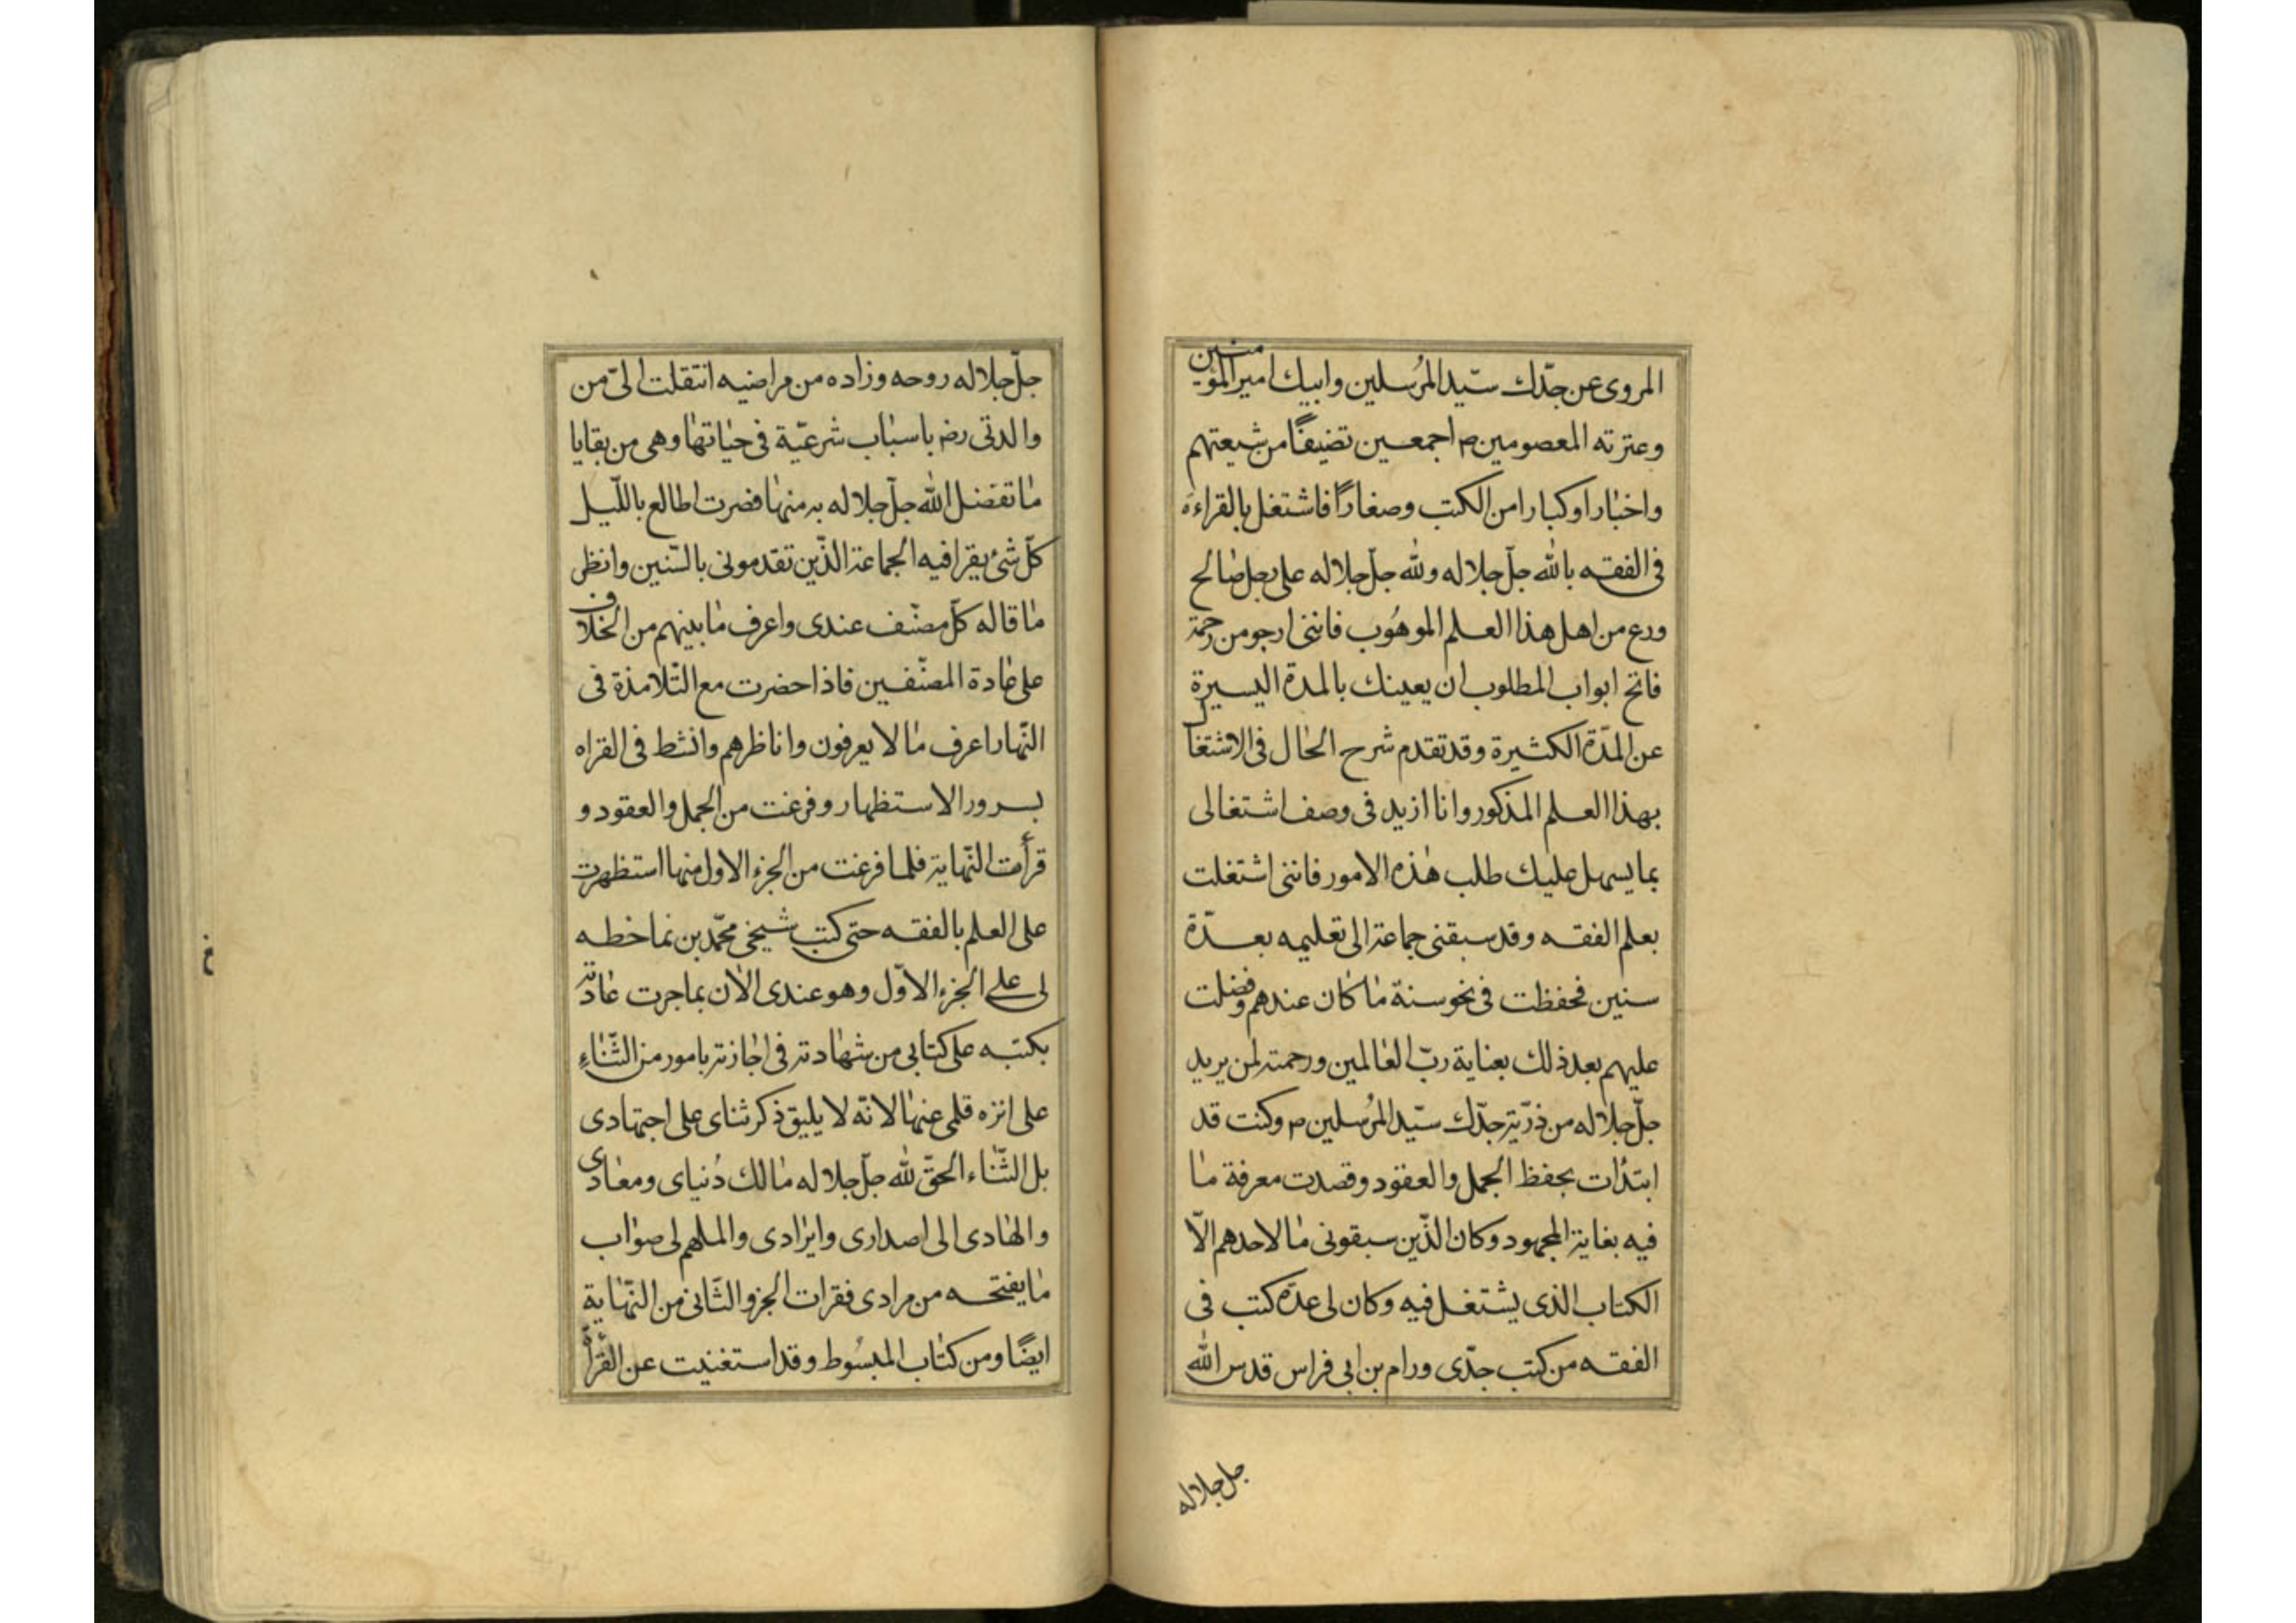 المروى عن جدّك سيّد المرُسلين وابيك امير المؤمنين
وعترته المعصومين م اجمعين تضيفًا من شيعتهم
واخبارا وكبارا من الكتب وصغارًا فاشتغل بالقراءة
فى الفقه بالله جلّ جلاله ولله جلّ جلاله على رجل صالح
ورع من اهل هذا العلم الموهُوب فاننى ارجو من رحمة
فاتح ابواب المطلوب ان يعينك بالمدة اليسيرة
عن المدّة الكثيرة وقد تقدم شرح الحال فى الاشتغال
بهذا العلم المذكور وانا ازيد فى وصف اشتغالى
بما يسهل عليك طلب هذه الامور فاننى اشتغلت
بعلم الفقه وقد سبقنى جماعة الى تعليمه بعدّة
سنين فحفظت فى نحو سنة ما كان عندهم وفضلت
عليهم بعد ذلك بعناية ربّ العالمين ورحمته لمن يريد
جلّ جلاله من ذريّة جدّك سيّد المرُسلين م وكنت قد
ابتدأت بحفظ الجمل والعقود وقصدت معرفة ما
فيه بغاية المجهود وكان الذّين سبقونى ما لاحدهم الاّ
الكتاب الذى يشتغل فيه وكان لى عدة كتب فى
الفقه من كتب جدّى ورام بن ابى فراس قدس الله
جل جلاله
جلّ جلاله روحه وزاده من مراضيه انتقلت الىّ من
والدتى رضه باسباب شرعيّة فى حياتها وهى من بقايا
ما تفضل الله جلّ جلاله به منها فضرت اطالع باللّيل
كلّ شئ يقرا فيه الجماعة الذّين تقدمونى بالسّنين وانظر
ما قاله كلّ مصنّف عندى واعرف ما بينهم من الخلاف
على عادة المصنّفين فاذا حضرت مع التّلامذة فى
النّهار اعرف ما لا يعرفون واناظرهم وانشط فى القراه
بسرور الاستظهار وفرغت من الجمل والعقود و
قرأت النّهاية فلما فرغت من الجزء الاول منها استظهرت
على العلم بالفقه حتى كتب شيخى محمّد بن نما خطه
لى على الجزء الاوّل وهو عندى الان بما جرت عادته
بكتبه على كتابى من شهادته فى اجازته بامور من الثّناءِ
على انزه قلمى عنها لانّه لا يليق ذكر ثناى على اجتهادى
بل الثّناء الحقّ لله جلّ جلاله مالك دُنياى ومعادى
والهادى الى اصدارى وايرادى والملهم لى صواب
ما يفتحه من مرادى فقرات الجزو الثّانى من النّهاية
ايضًا ومن كتاب المبسُوط وقد استغنيت عن القرأة